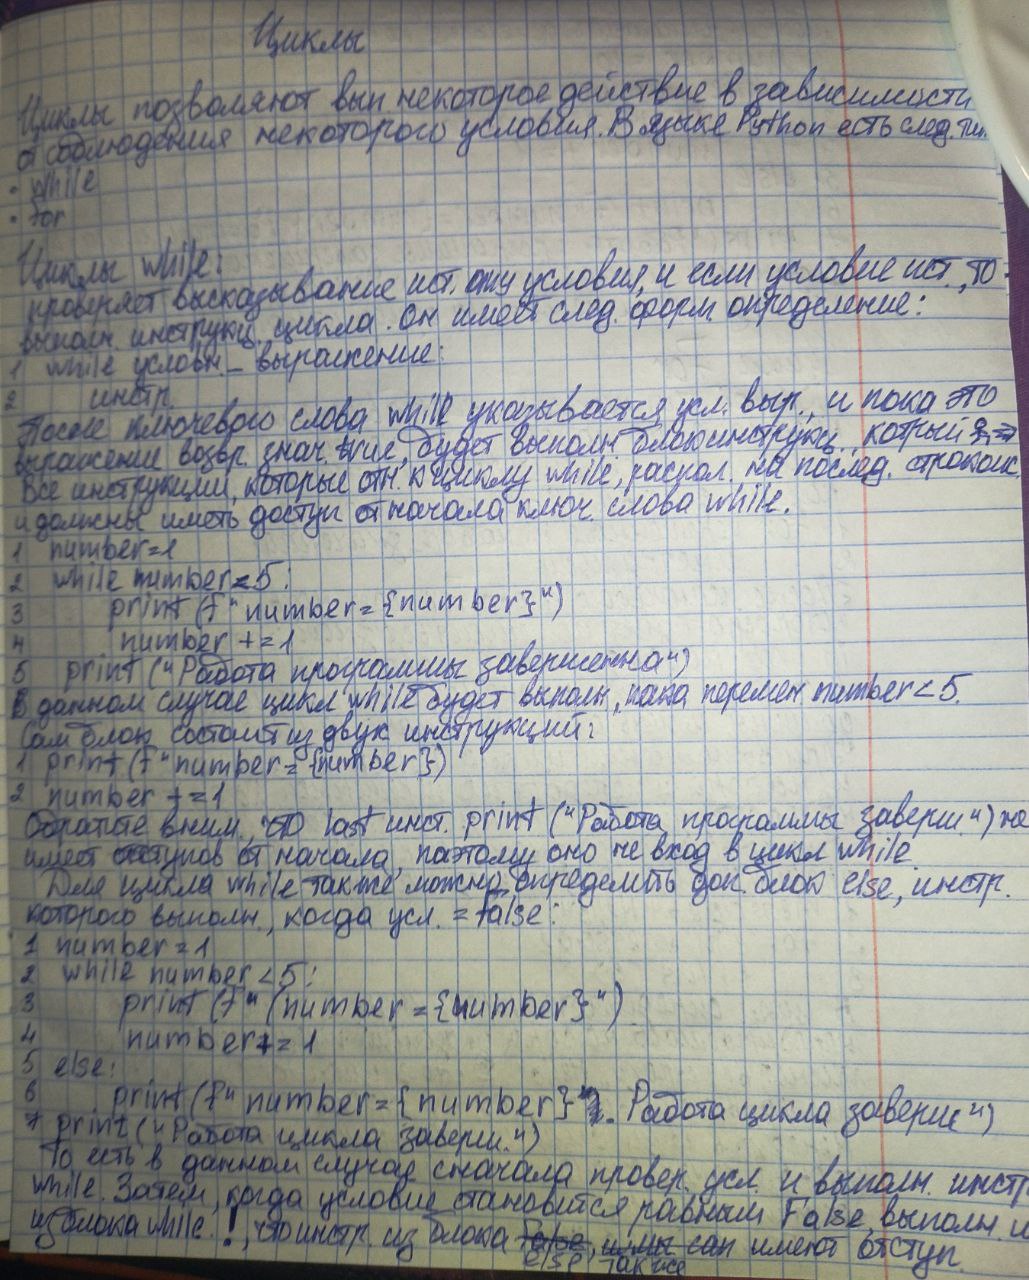 Циклы
Циклы позволяют вып некоторое действие в зависимости
от соблюдения некоторого условия. В языке Python есть след. тип
• while
• for
Циклы while:
проверяет высказывание ист. условия, и если условие ист., то
выполн. инструкц. цикла. Он имеет след. форм. определение:
1 while условн_выражение:
2 инстр.
После ключевого слова while указывается усл. выр., и пока это
выражение возвр. знач. будет выполн. блок инструкц., который
Все инструкции, которые отн. к циклу while, распол. на послед. строках
и должны иметь доступ от начала ключ. слова while.
1 number=1
2 while number<5:
3 print (f" number= {number}")
4 number +=1
5 print ("Работа программы завершенна")
В данном случае цикл while будет выполн, пока перемен. number<5.
Сам блок состоит из двух инструкций:
1 print (f" number= {number})
2 number +=1
Обратите вним., что last инст. print ("Работа программы заверш") не
имеет отступов от начала, поэтому оно не вход в цикл while
Для цикла while также можно определить доп. блок else, инстр.
которого выполн., когда усл. = false:
1 number=1
2 while number <5:
3 print (f" (number = {number}")
4 number+=1
5 else:
6 print (f" number = {number}. Работа цикла заверш")
7 print ("Работа цикла заверш.")
То есть в данном случае сначала провер. усл. и выполн. инстр
while. Затем, когда условие становится равным False, выполн. и
из блока while. !, что инстр. из блока имеют отступ.
else, также